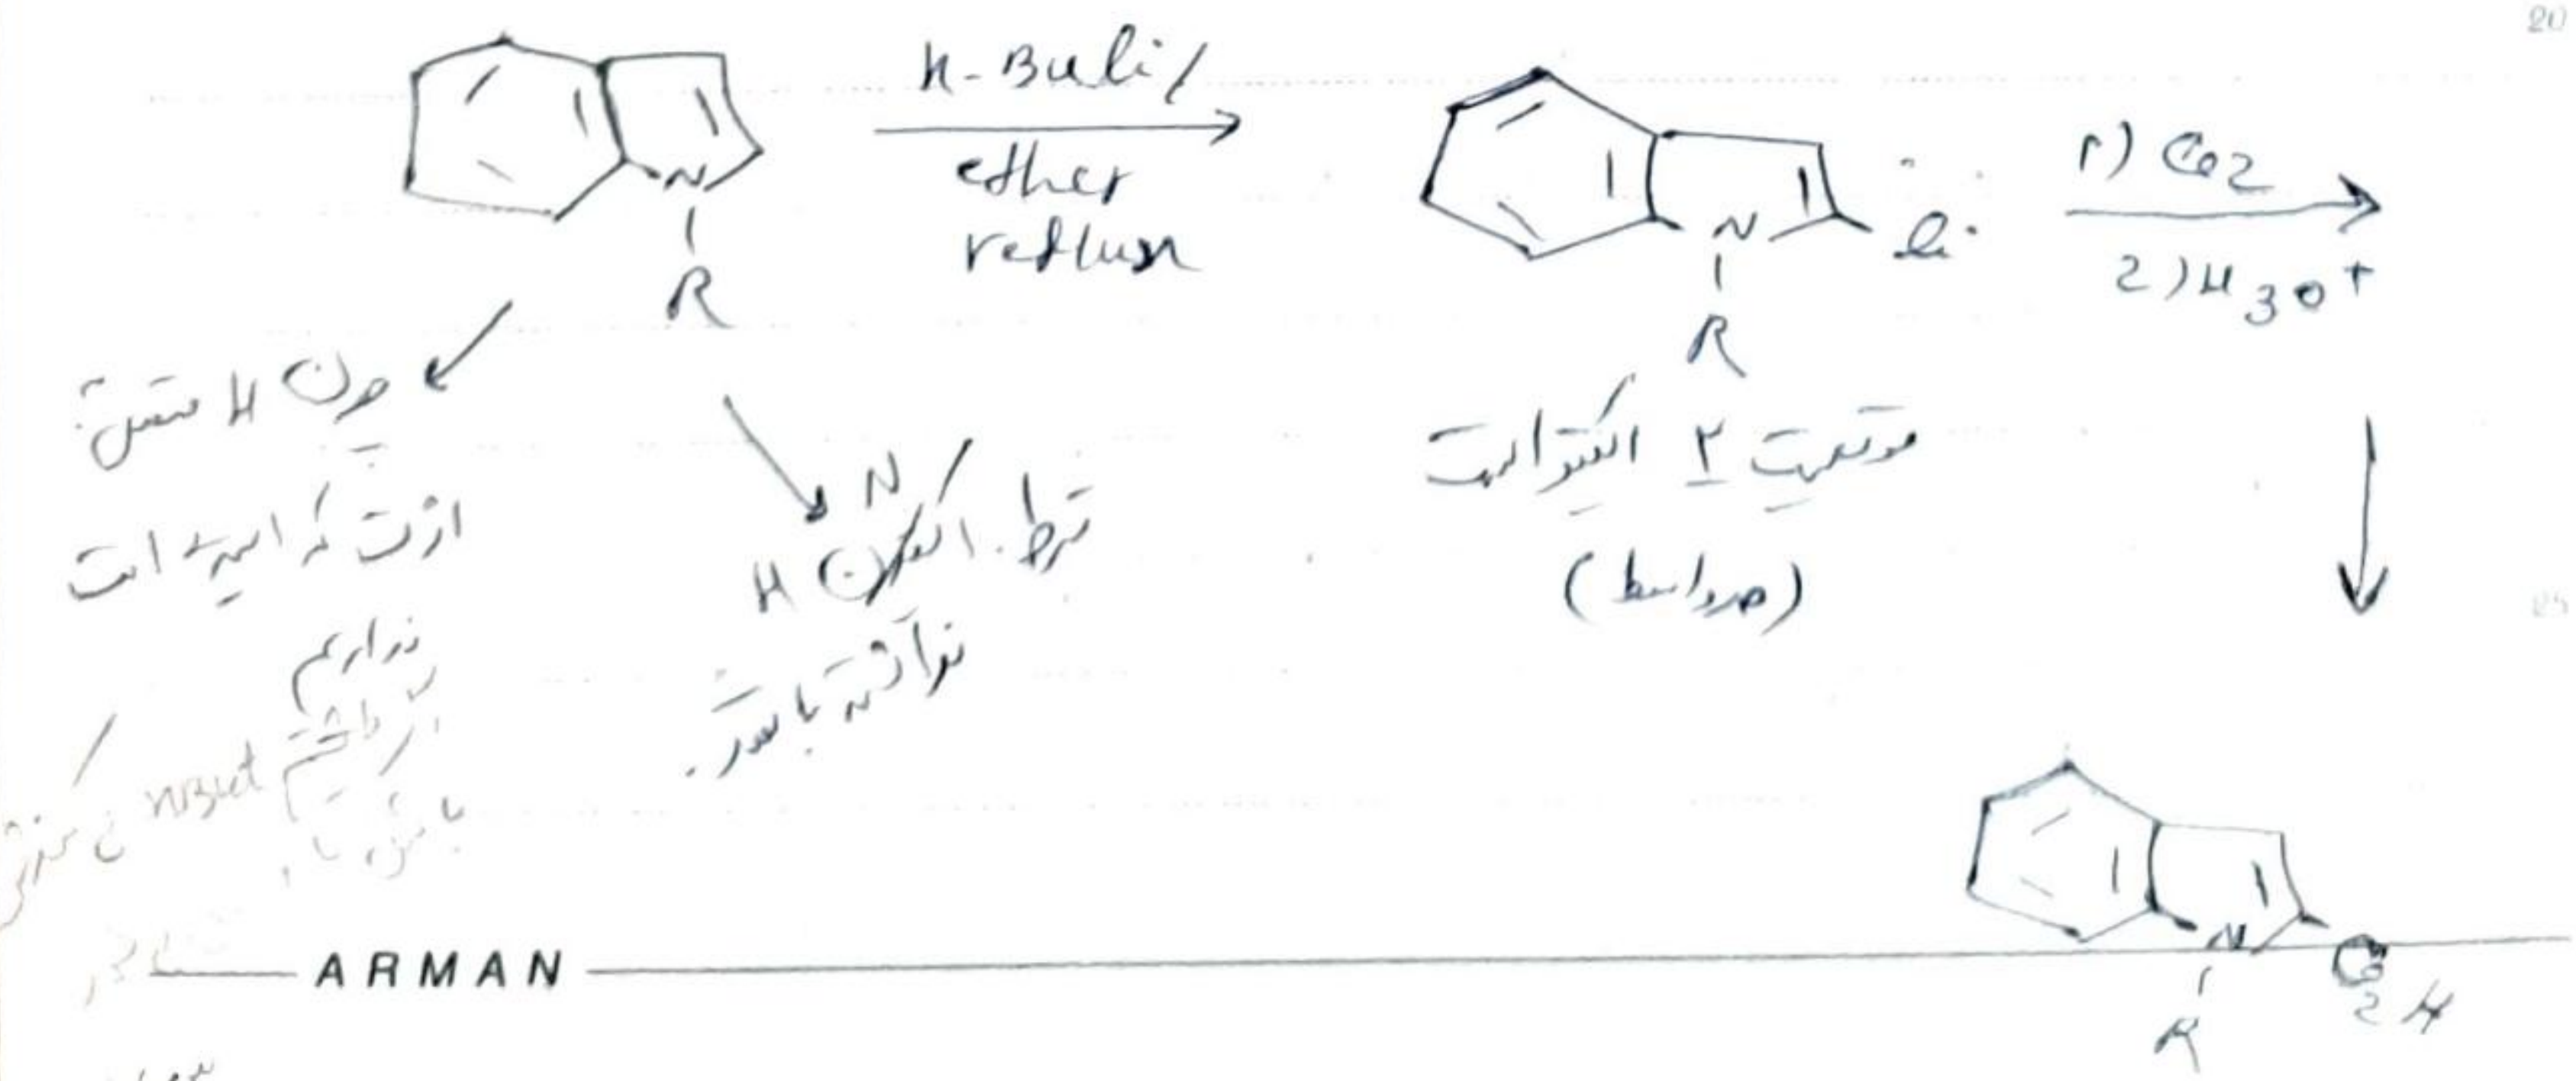 20
n-BuLi /
ether
reflux
N
R
N
Li
R
1) CO2
2) H3O+
چون H متصل
از ت که اسیدی است
نداریم
شرط: اینکه N
H
نداشته باشد.
موقعیت ۲ اکتیو است
(حدواسط)
25
N
R
CO2H
ARMAN